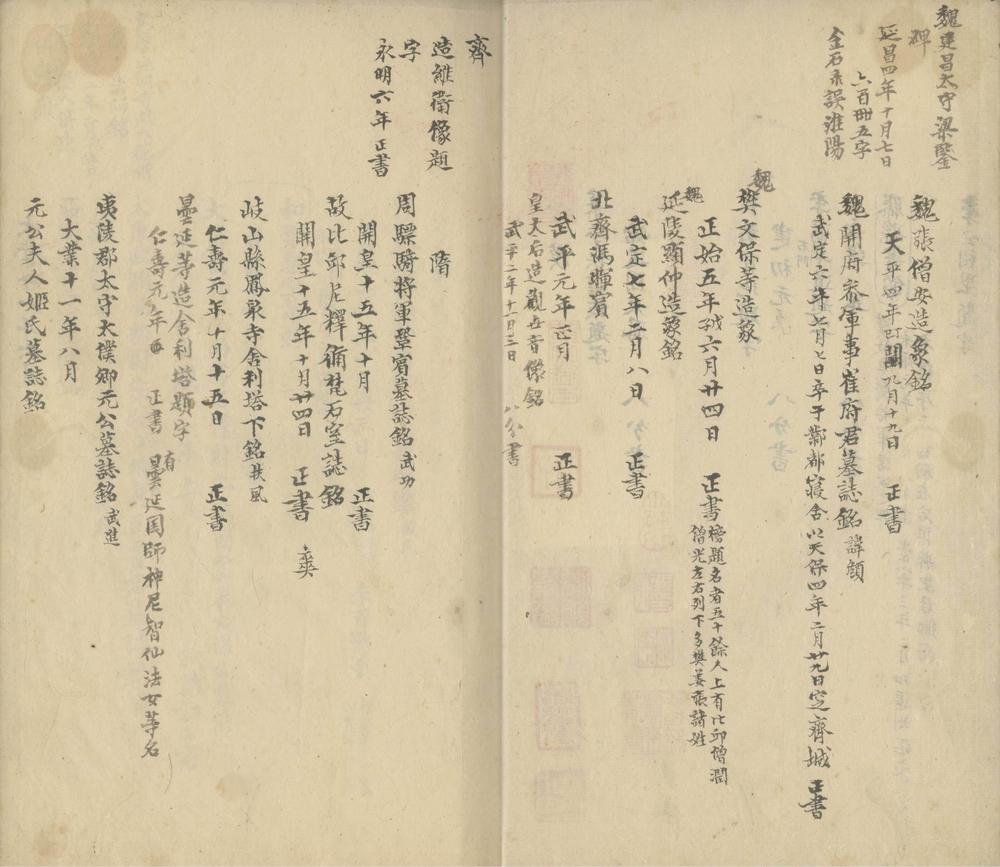 魏建昌太守梁鑒
碑
延昌四年十月七日
六百卌五字
金石录誤淮陽
魏張僧安造象銘
天平四年閏九月十九日 正書
魏開府叅軍事崔府君墓誌銘 諱頠
武定六年七月七日卒于鄴都寢舍以天保四年二月廿九日定齊城 正書
魏
樊文保等造象
正始五年六月廿四日 正書 榜題名者五十餘人上有比邱僧潤
僧光左右列下多樊姜張諸姓
魏
延陵顯仲造象銘
武定七年二月八日 正書
北齊馮暉賓
武平元年正月 正書
皇太后造觀世音像銘
武平二年十一月三日 八分書
齊
造維衛像題
字
永明六年 正書
隋
周驃騎將軍鞏賓墓誌銘 武功
開皇十五年十月 正書
故比邱尼釋脩梵石室誌銘
開皇十五年十月廿四日 正書
岐山縣鳳泉寺舍利塔下銘 扶風
仁壽元年十月十五日 正書
曇延等造舍利塔題字
仁壽元年 正書 有曇延国師神尼智仙法女等名
夷陵郡太守太僕卿元公墓誌銘 武進
大業十一年八月
元公夫人姬氏墓誌銘